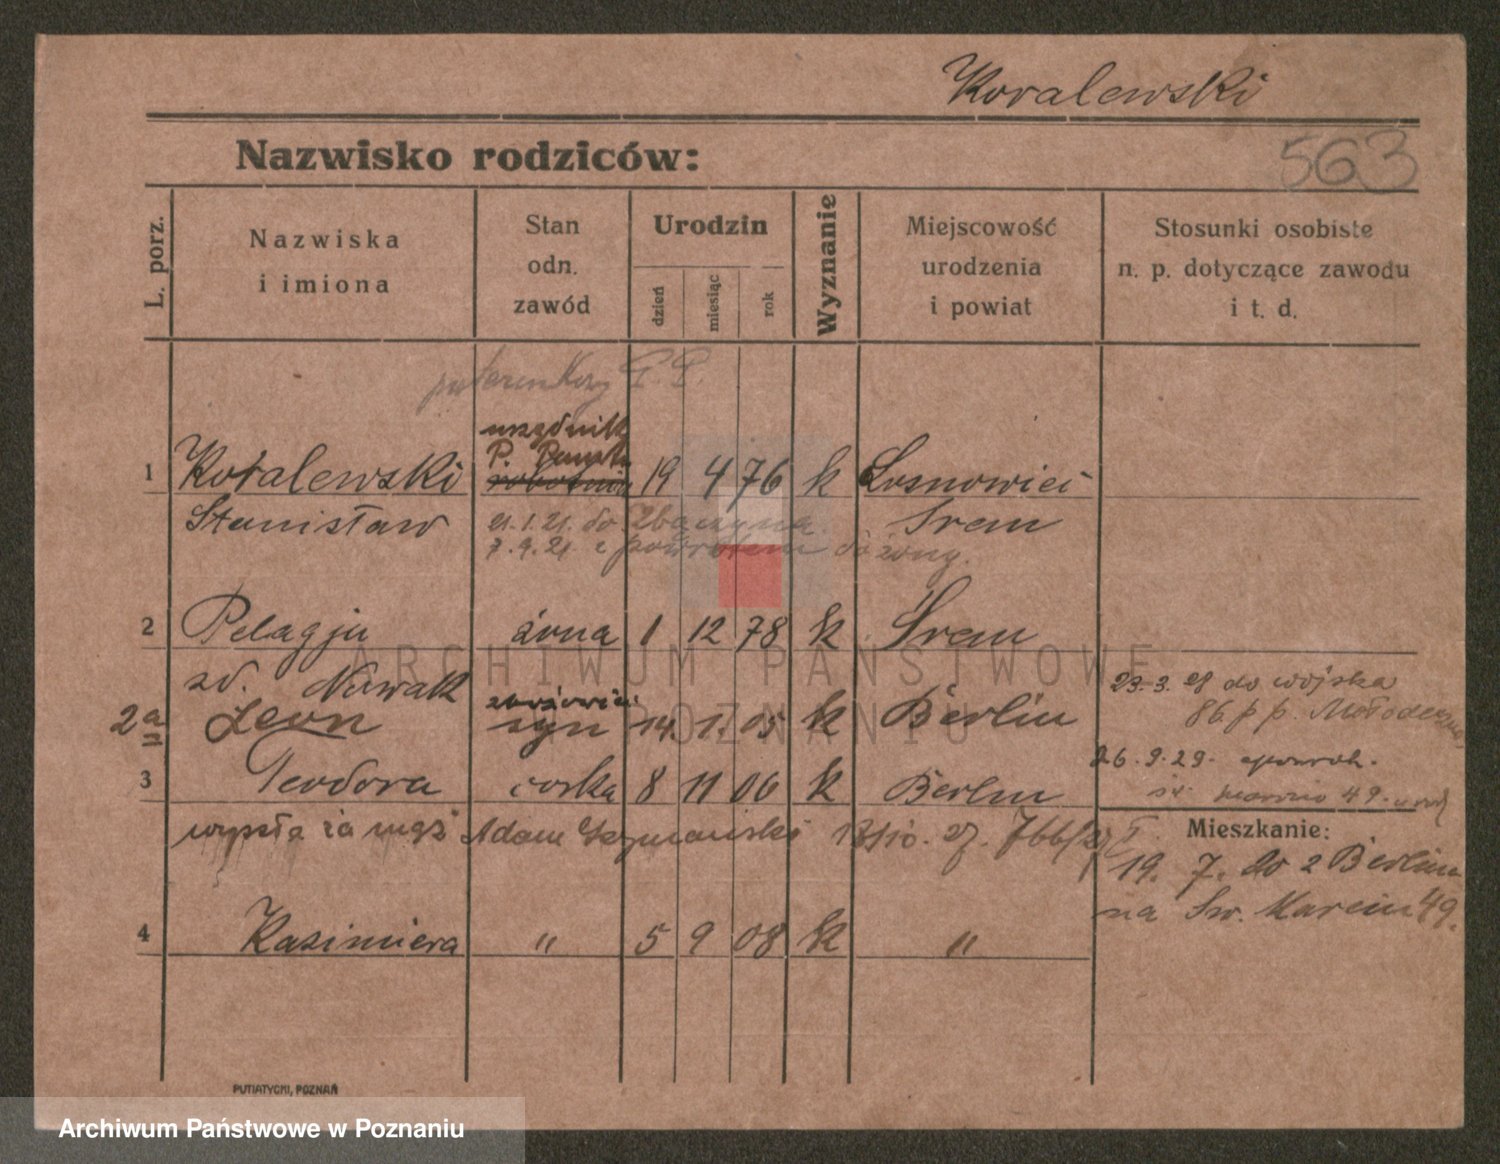 Koralewski
Nazwisko rodziców:
563
L. porz.
Nazwiska
i imiona
Stan
odn.
zawód
Urodzin
dzień
miesiąc
rok
Wyznanie
Miejscowość
urodzenia
i powiat
Stosunki osobiste
n. p. dotyczące zawodu
i t. d.
urzędnik
P.
1 Koralewski robotnik 19 4 76 k Sosnowiec
Stanisław 21.1.21. do Zbąszynia. Śrem
7.9.21 z powrotem do żony.
2 Pelagja żona 1 12 78 k Śrem
zd. Nowak
23.3.28 do wojska
2a Leon syn 14. 1. 05 k Berlin
86 p p. Mołodeczno
26.9.29.
3 Teodora córka 8 11 06 k Berlin
49.
wyszła za mąż Adam Szymański
Mieszkanie:
19. 7. do z Berlina
na Św. Marcin 49.
4 Kazimiera " 5 9 08 k "
PUTIATYCKI, POZNAŃ
ARCHIWUM PAŃSTWOWE
W POZNANIU
Archiwum Państwowe w Poznaniu